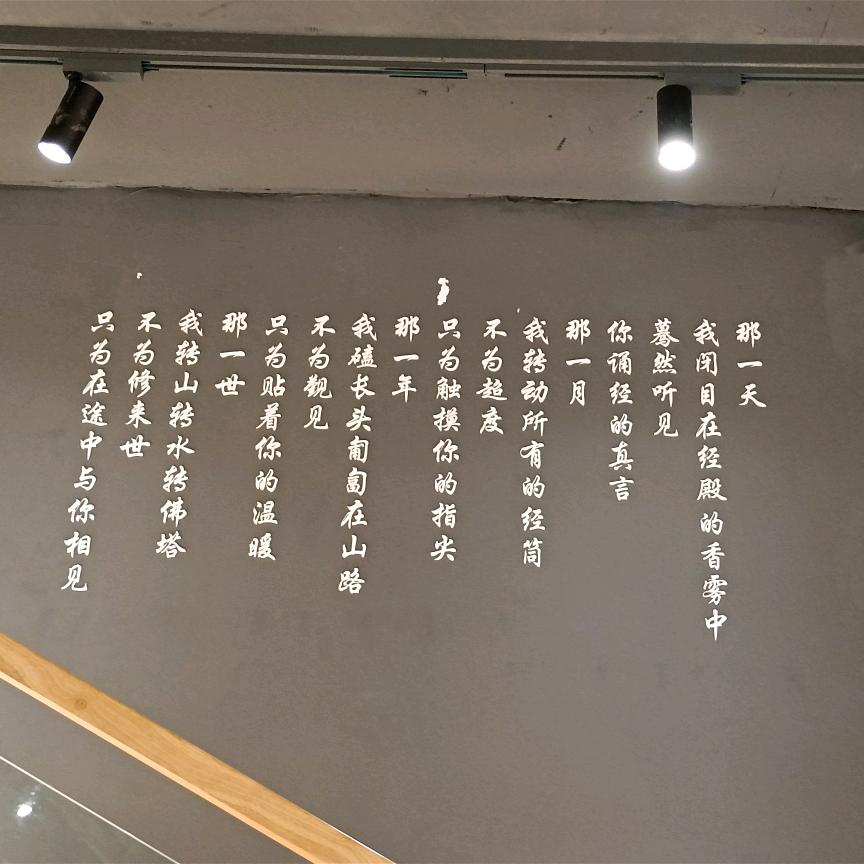 那一天
我闭目在经殿的香雾中
蓦然听见
你诵经的真言
那一月
我转动所有的经筒
不为超度
只为触摸你的指尖
那一年
我磕长头匍匐在山路
不为觐见
只为贴着你的温暖
那一世
我转山转水转佛塔
不为修来世
只为在途中与你相见